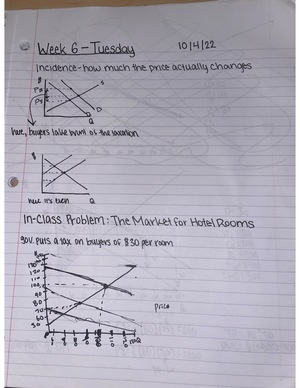 Week 6 - Tuesday
10/4/22
Incidence - how much the price actually changes
$
S
D
Q
here, buyers take brunt of the taxation
$
Q
here it's even
In-Class Problem: The Market for Hotel Rooms
gov. puts a tax on buyers of $30 per room
120
110
100
90
80
70
60
50
Q
price